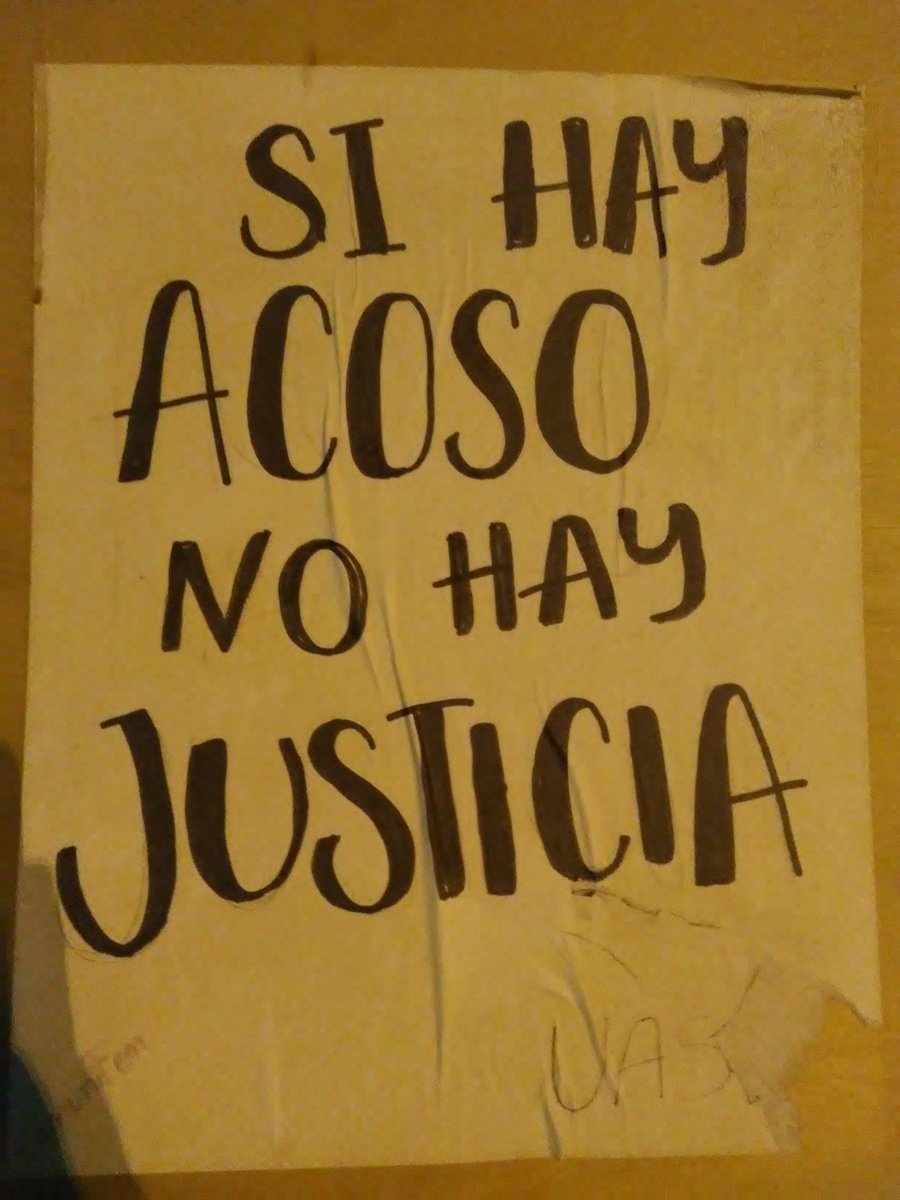 SI HAY
ACOSO
NO HAY
JUSTICIA
UAS